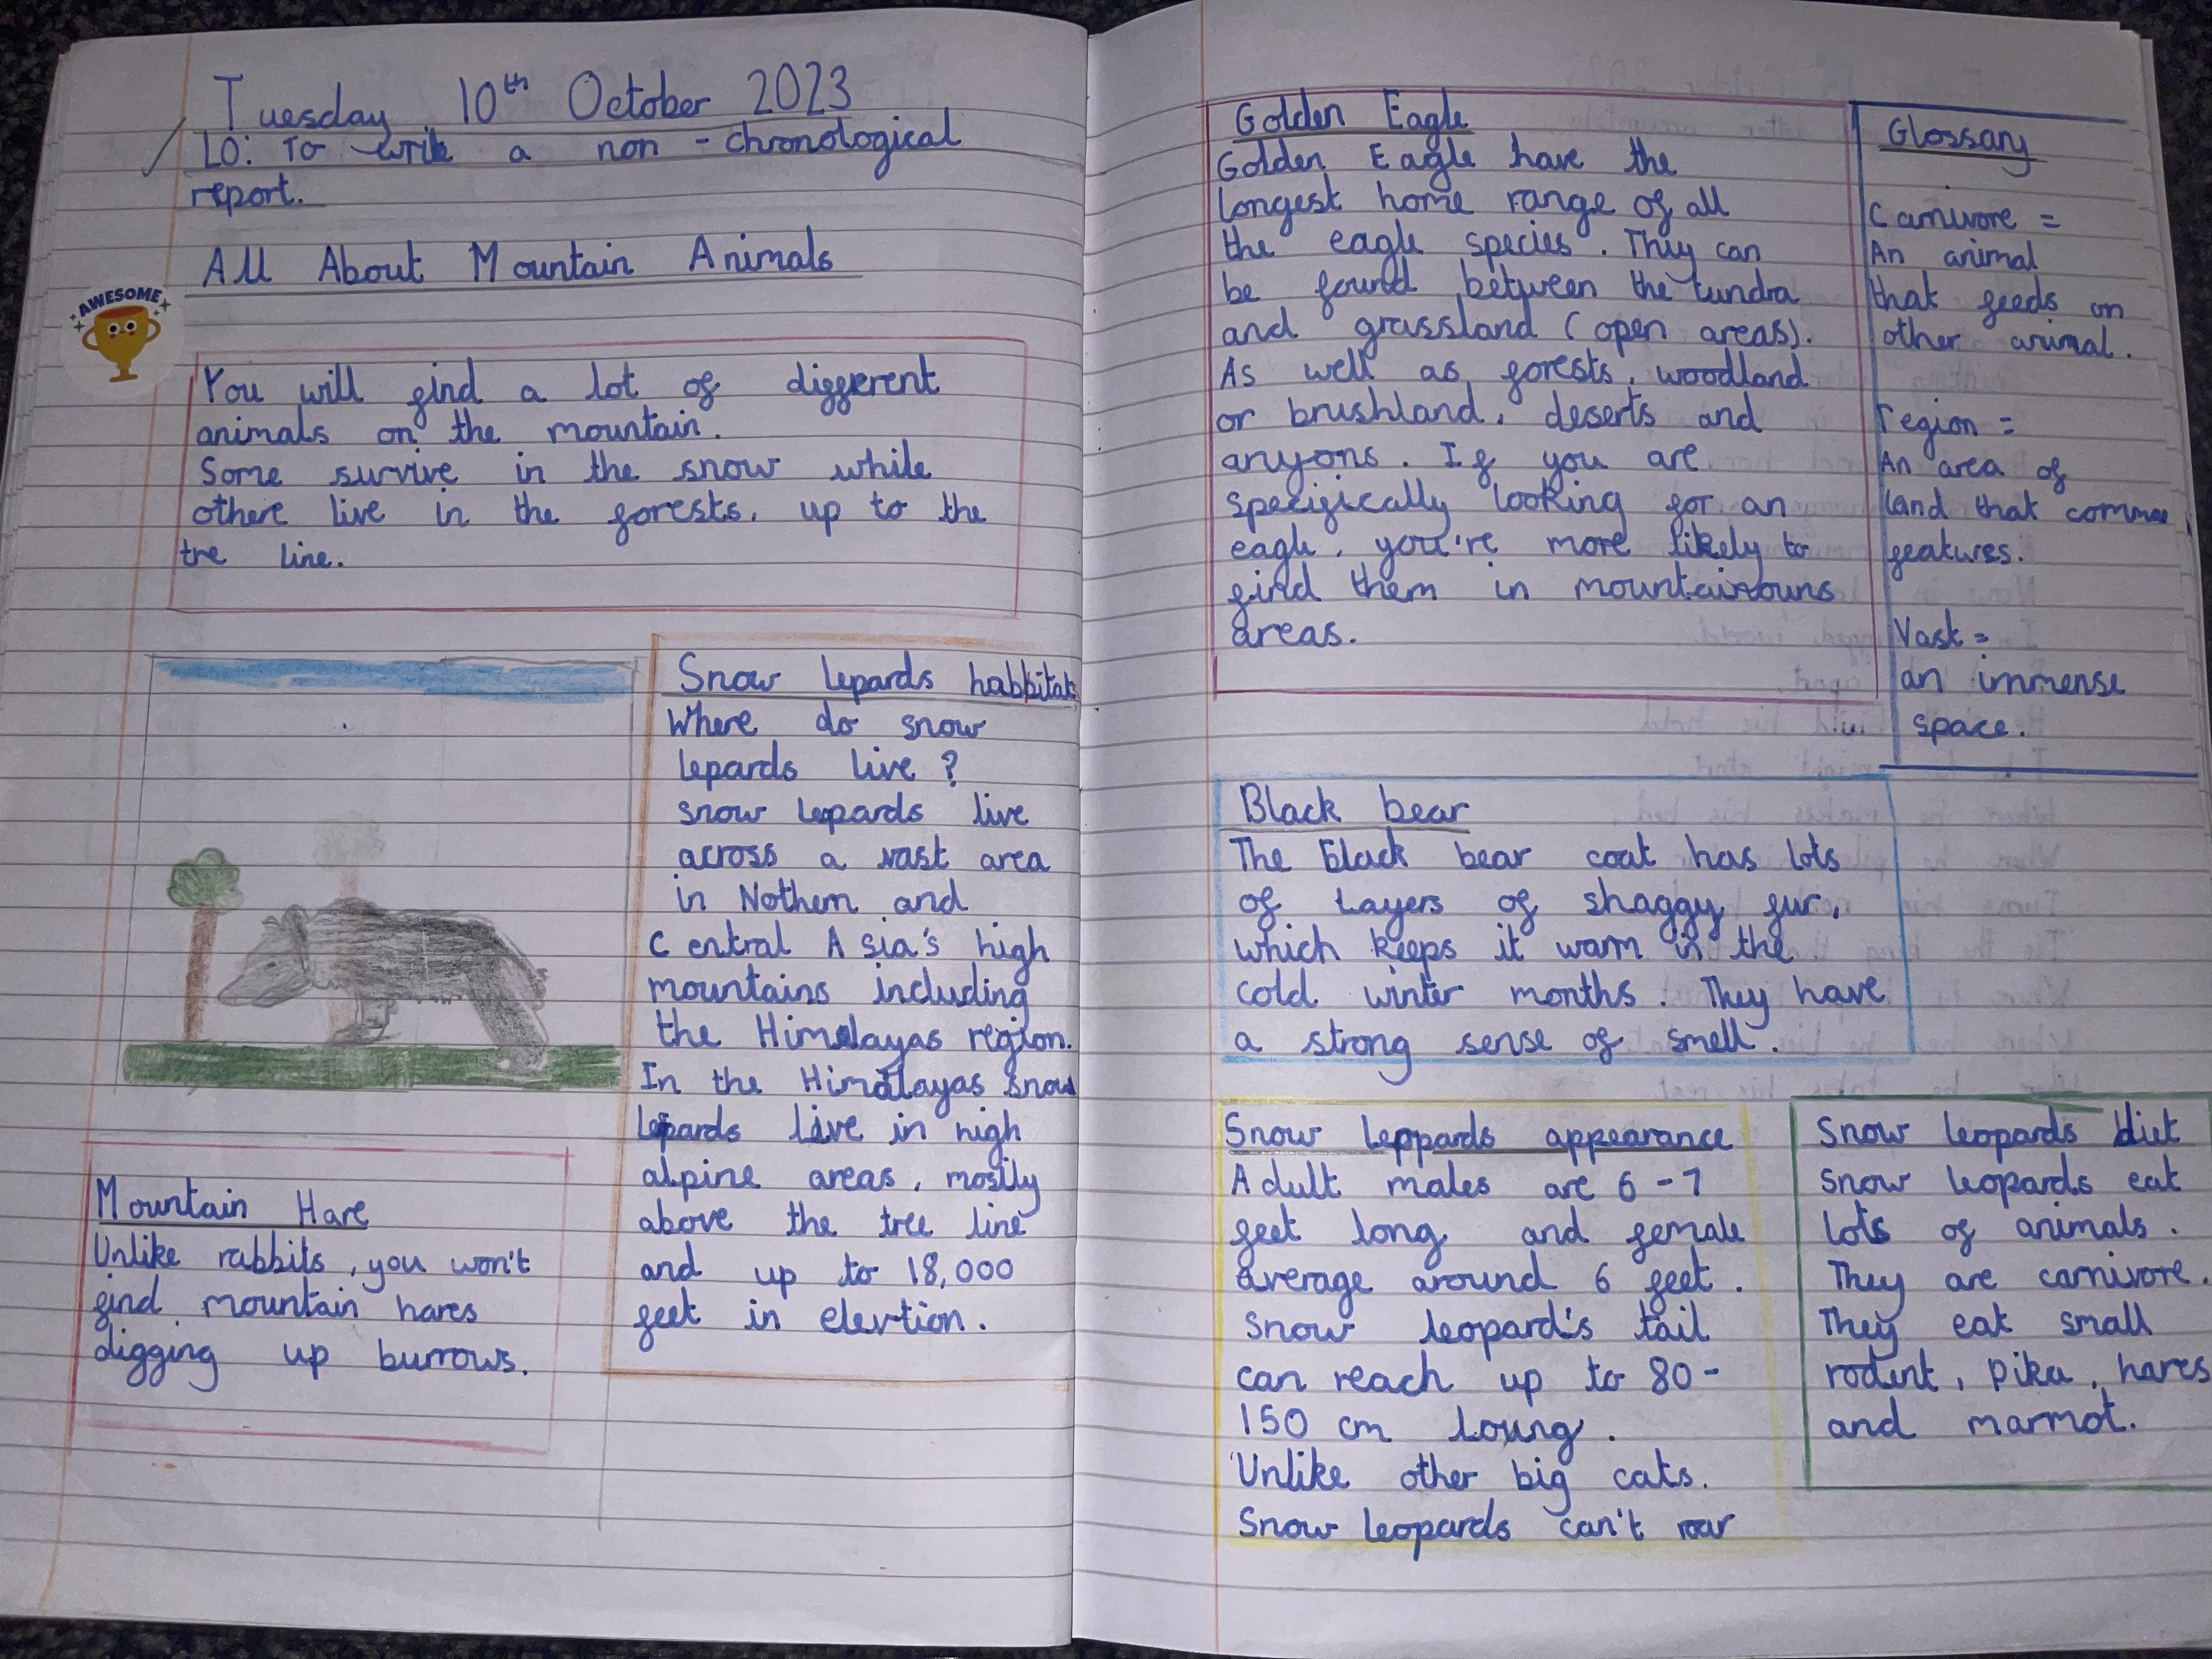 Tuesday 10th October 2023
LO: To write a non - chronological
report.
All About Mountain Animals
AWESOME
You will find a lot of different
animals on the mountain.
Some survive in the snow while
othere live in the forests, up to the
tre line.
Snow lepards habbitats
Where do snow
lepards live ?
snow lepards live
across a vast area
in Nothern and
Central Asia's high
mountains including
the Himalayas region.
In the Himalayas snow
lepards live in high
alpine areas, mostly
above the tree line
and up to 18,000
feet in elevtion.
Mountain Hare
Unlike rabbits, you won't
find mountain hares
digging up burrows.
Golden Eagle
Golden Eagle have the
longest home range of all
the eagle species. They can
be found between the tundra
and grassland (open areas).
As well as forests, woodland
or brushland, deserts and
anyons. If you are
specifically looking for an
eagle, you're more likely to
find them in mountainouns
areas.
Glossary
Carnivore =
An animal
that feeds on
other animal.
region =
An area of
land that common
features.
Vast =
an immense
space.
Black bear
The black bear coat has lots
of layers of shaggy fur,
which keeps it warm in the
cold winter months. They have
a strong sense of smell.
Snow leppards appearance
Adult males are 6-7
feet long and female
average around 6 feet.
Snow leopard's tail
can reach up to 80-
150 cm loung.
Unlike other big cats.
Snow leopards can't roar
Snow leopards diet
Snow leopards eat
lots of animals.
They are carnivore.
They eat small
rodent, pika, hares
and marmot.